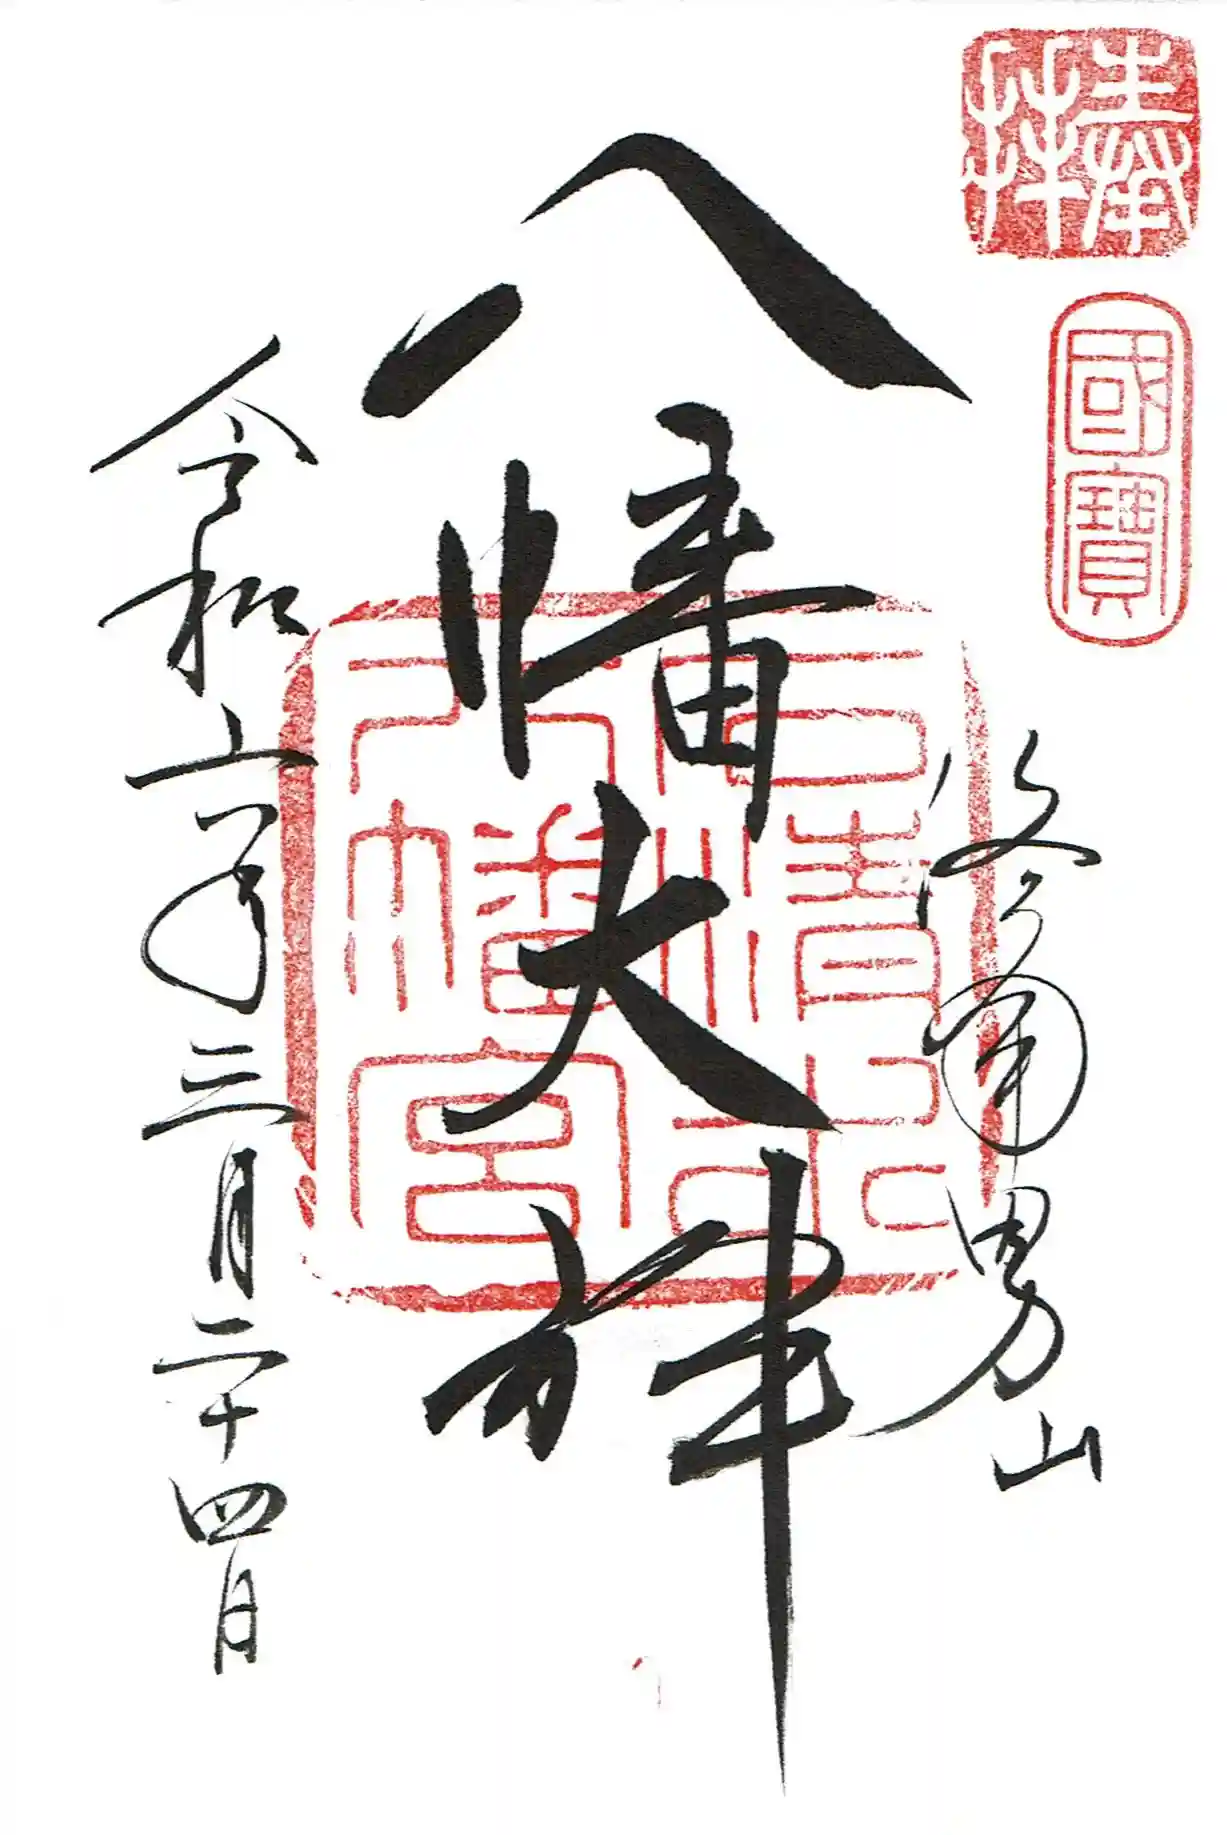 奉拜
國寶
洛南男山
八幡大神
石清水
八幡宮
令和六年三月二十四日